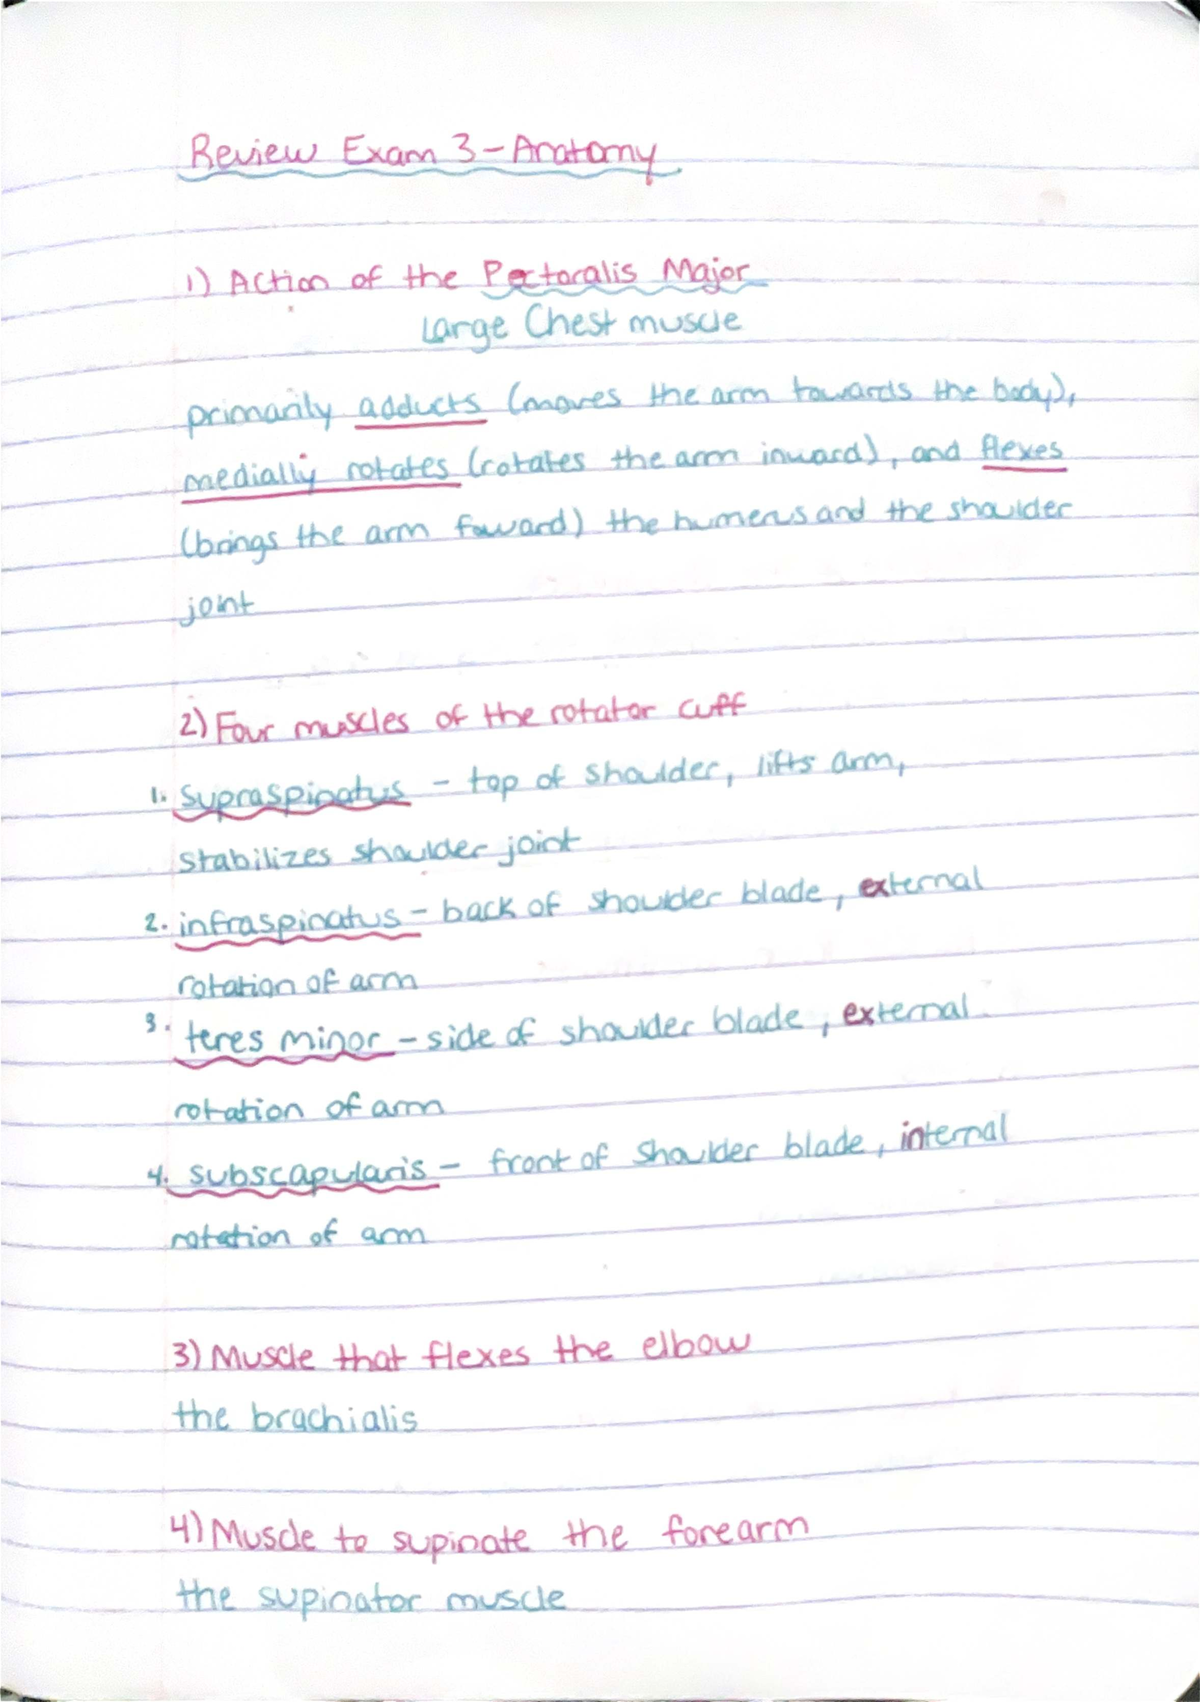 Review Exam 3 - Anatomy
1) Action of the Pectoralis Major
Large Chest muscle
primarily adducts (moves the arm towards the body),
medially rotates (rotates the arm inward), and flexes
(brings the arm foward) the humerus and the shoulder
joint
2) Four muscles of the rotator cuff
1. Supraspinatus - top of shoulder, lifts arm,
stabilizes shoulder joint
2. infraspinatus - back of shoulder blade, external
rotation of arm
3. teres minor - side of shoulder blade, external
rotation of arm
4. subscapularis - front of shoulder blade, internal
rotation of arm
3) Muscle that flexes the elbow
the brachialis
4) Muscle to supinate the forearm
the supinator muscle